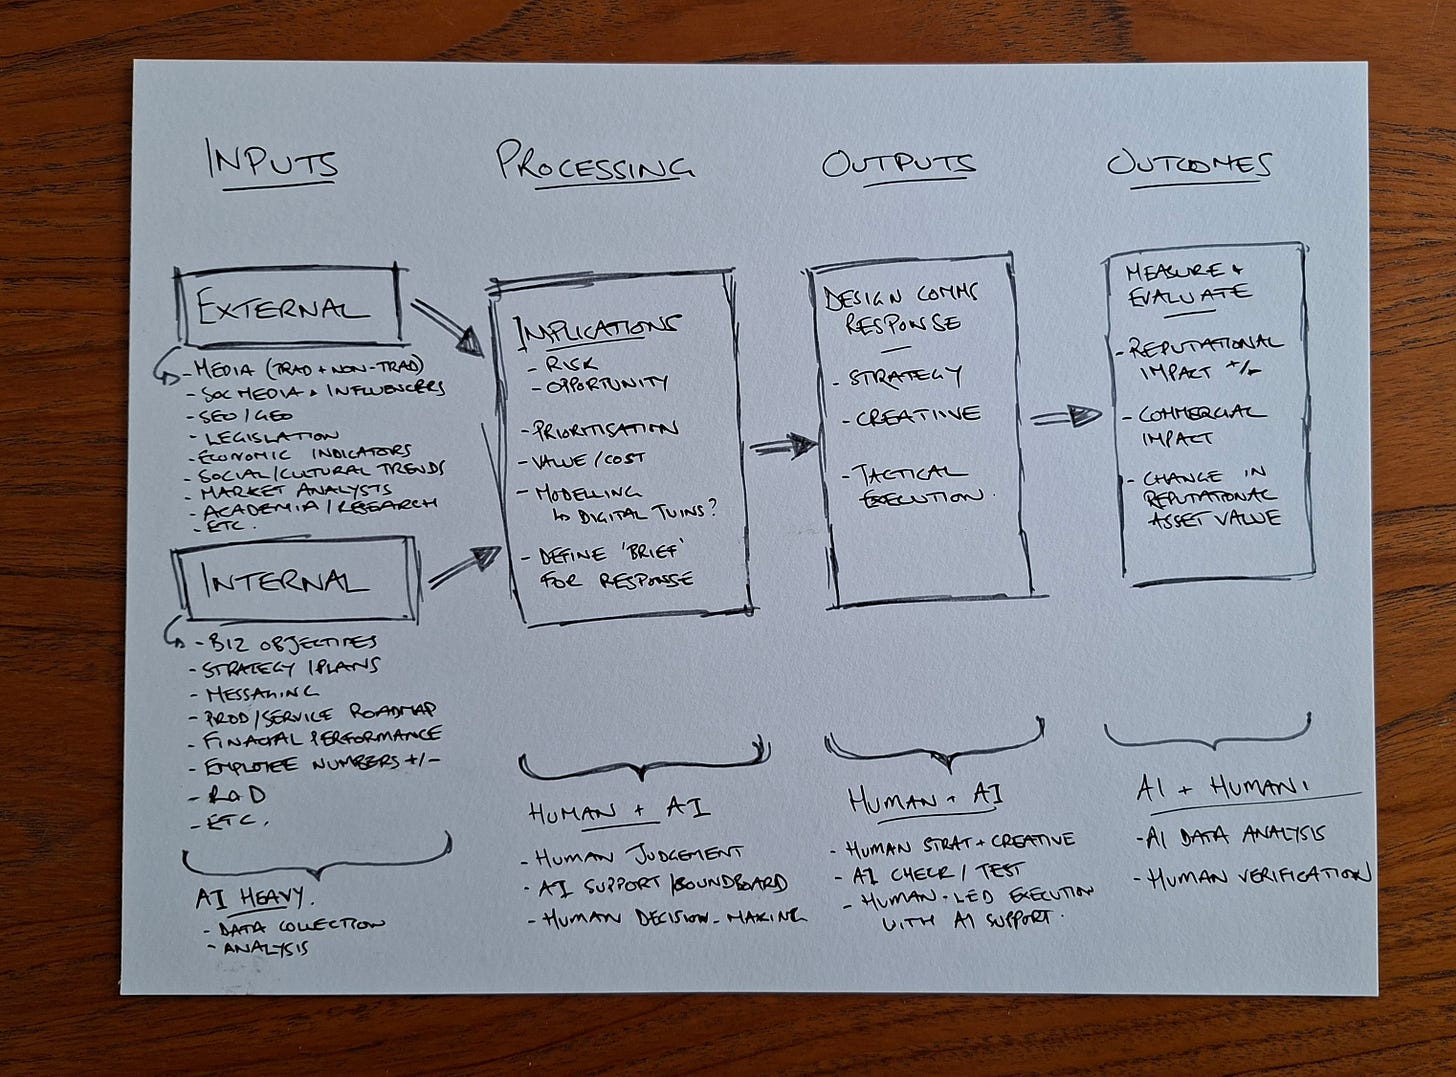 INPUTS
EXTERNAL
- MEDIA (TRAD + NON-TRAD)
- SOC MEDIA + INFLUENCERS
- SEO / GEO
- LEGISLATION
- ECONOMIC INDICATORS
- SOCIAL/CULTURAL TRENDS
- MARKET ANALYSTS
- ACADEMIA / RESEARCH
- ETC.
INTERNAL
- BIZ OBJECTIVES
- STRATEGY / PLANS
- MESSAGING
- PROD/SERVICE ROADMAP
- FINACIAL PERFORMANCE
- EMPLOYEE NUMBERS +/-
- R&D
- ETC.
AI HEAVY.
- DATA COLLECTION
- ANALYSIS
PROCESSING
IMPLICATIONS
- RISK
- OPPORTUNITY
- PRIORITISATION
- VALUE / COST
- MODELLING
↳ DIGITAL TWINS?
- DEFINE 'BRIEF'
FOR RESPONSE
HUMAN + AI
- HUMAN JUDGEMENT
- AI SUPPORT/SOUNDBOARD
- HUMAN DECISION-MAKING
OUTPUTS
DESIGN COMMS
RESPONSE
- STRATEGY
- CREATIVE
- TACTICAL
EXECUTION.
HUMAN + AI
- HUMAN STRAT + CREATIVE
- AI CHECK / TEST
- HUMAN-LED EXECUTION
WITH AI SUPPORT.
OUTCOMES
MEASURE +
EVALUATE
- REPUTATIONAL
IMPACT +/-
- COMMERCIAL
IMPACT
- CHANGE IN
REPUTATIONAL
ASSET VALUE
AI + HUMAN
- AI DATA ANALYSIS
- HUMAN VERIFICATION